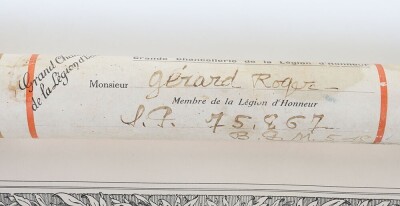 Grande Chancellerie de la Légion d'Honneur
Grand Cha
de la Légion d'
Monsieur Gérard Roger
Membre de la Légion d'Honneur
S.P. 75.867